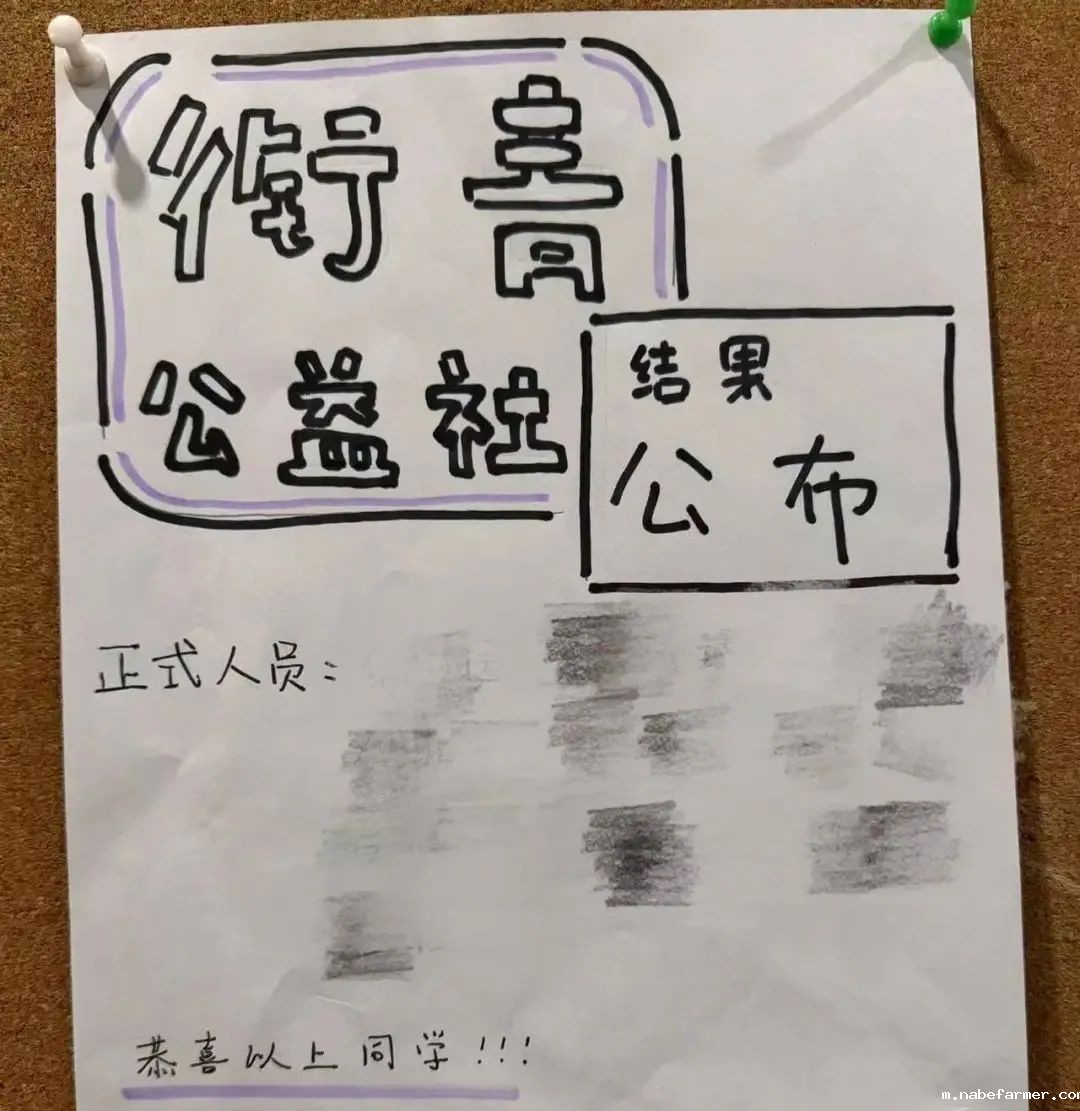 衡高
公益社
结果
公布
正式人员：
恭喜以上同学!!!
m.nabefarmer.com